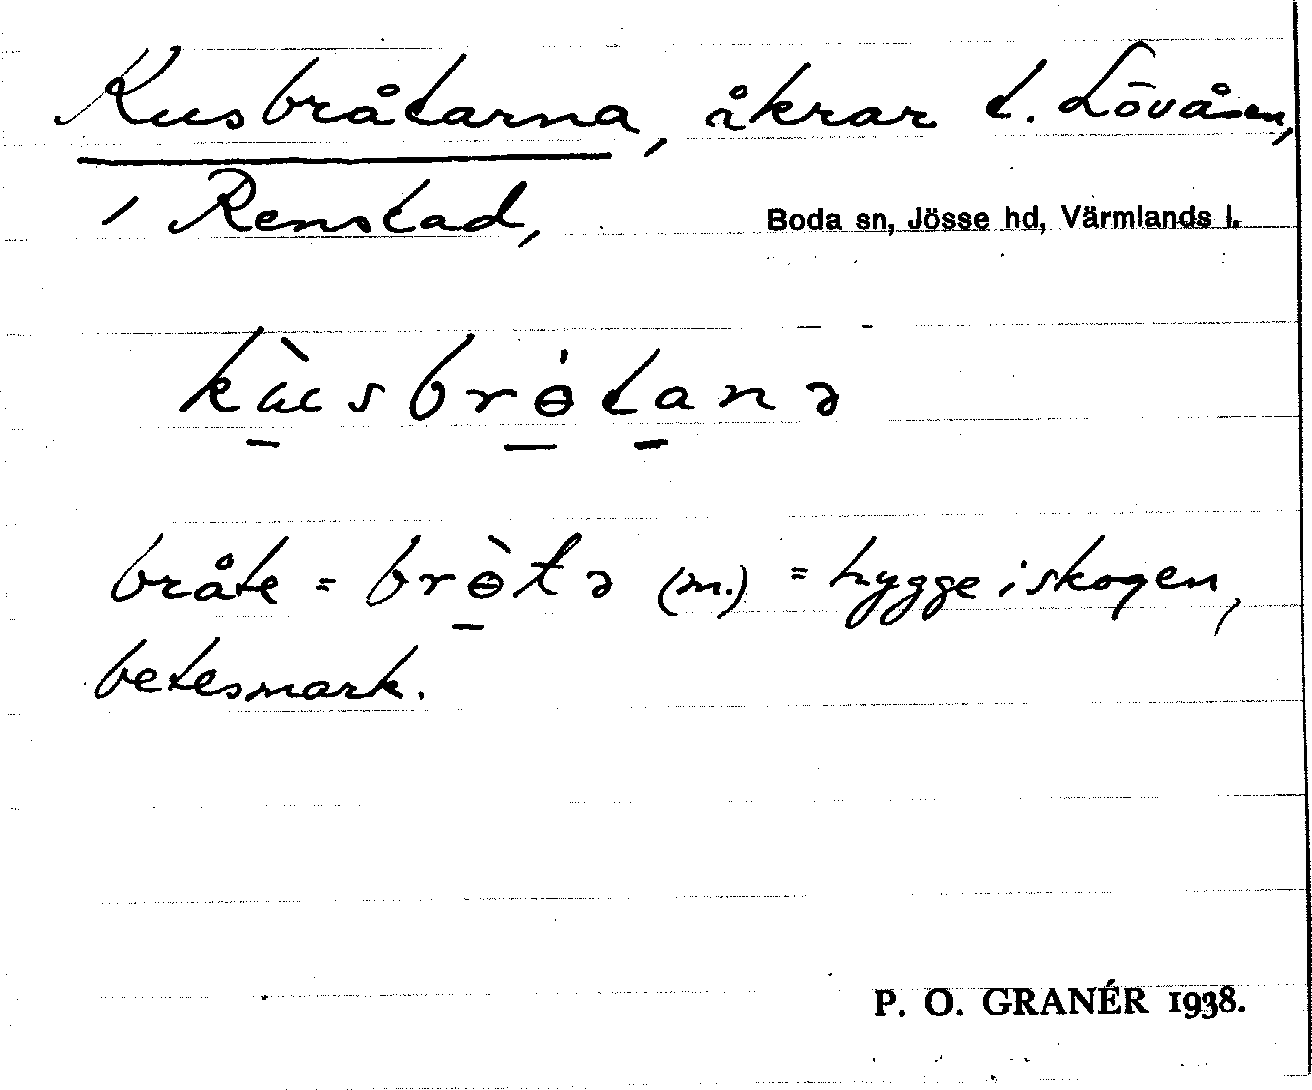 Kusbråtarna, åkrar t. Lövåsen,
i Renstad, Boda sn, Jösse hd, Värmlands l.
kùsbrɵ́tanə
bråte = brɵ̀tə (m.) = hygge i skogen,
betesmark.
P. O. GRANÉR 1938.